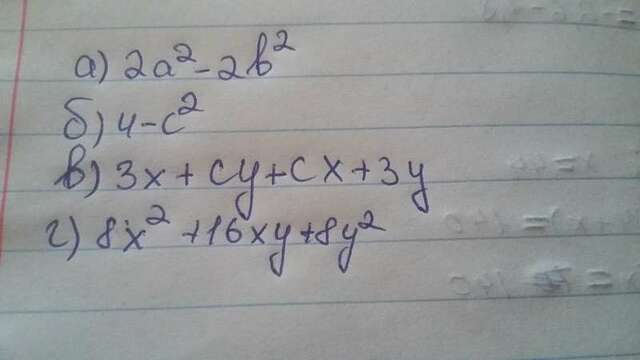 а) 2a² - 2b²
б) 4 - c²
в) 3x + cy + cx + 3y
г) 8x² + 16xy + 8y²